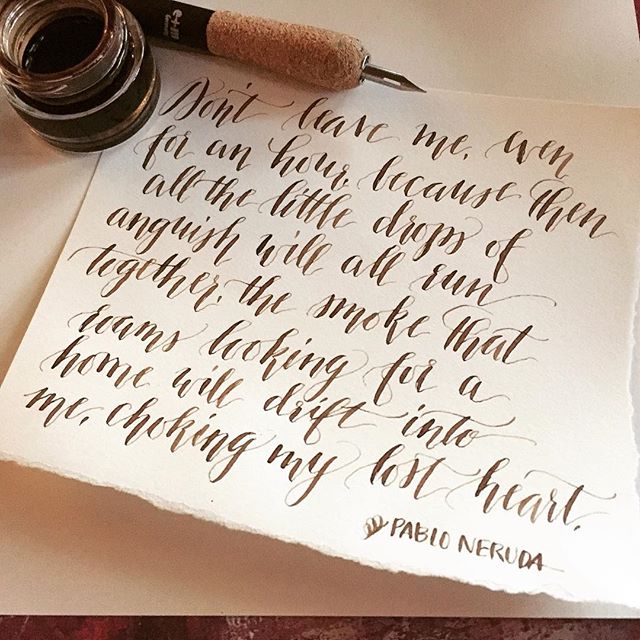 Don't leave me, even
for an hour, because then
all the little drops of
anguish will all run
together, the smoke that
roams looking for a
home will drift into
me, choking my lost heart.
PABLO NERUDA